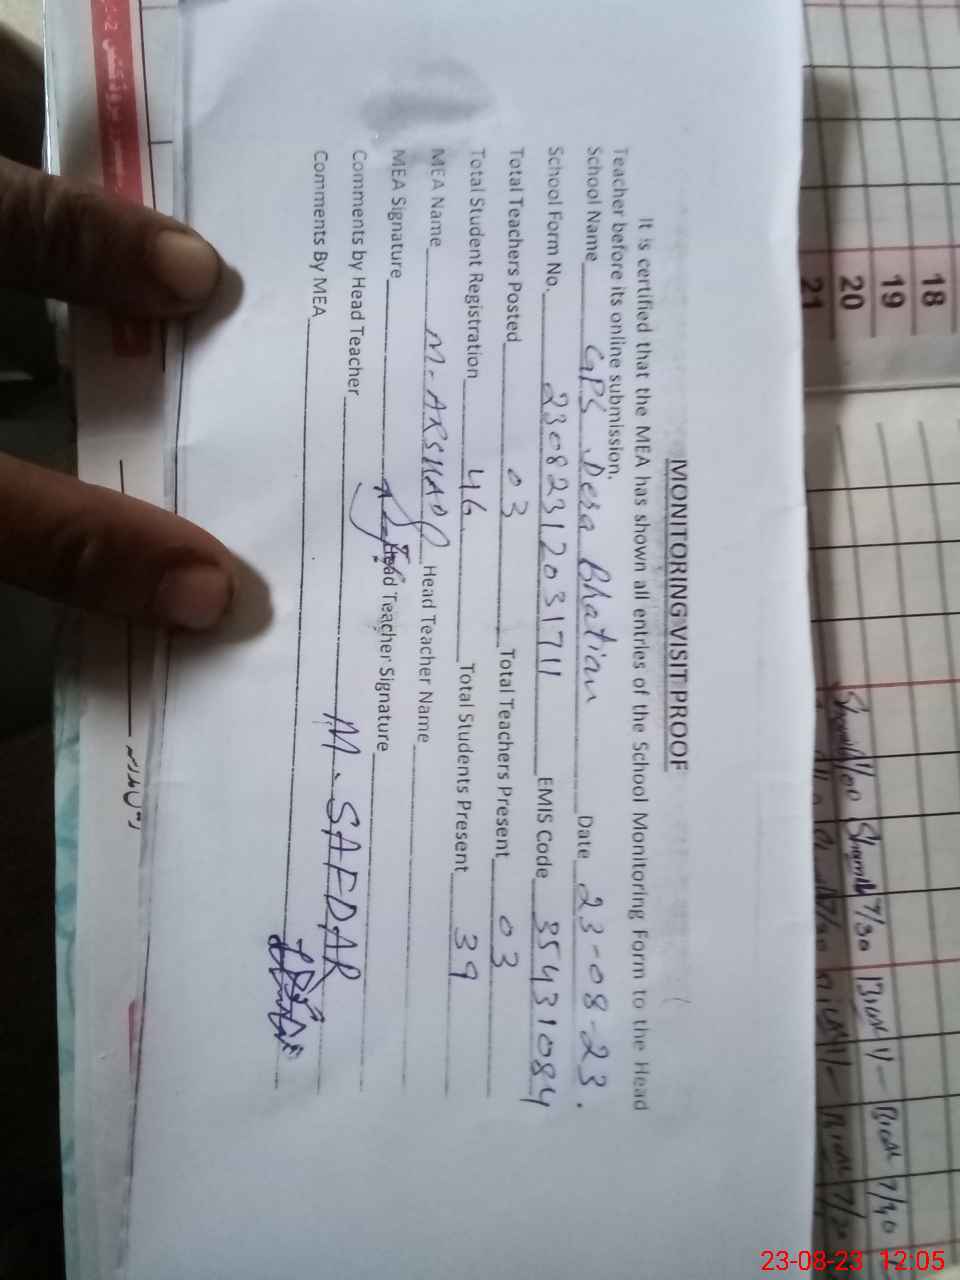 MONITORING VISIT PROOF
It is certified that the MEA has shown all entries of the School Monitoring Form to the Head
Teacher before its online submission.
School Name GPS Dera Bhatian Date 23-08-23.
School Form No. 23082312031711 EMIS Code 35431084
Total Teachers Posted 03 Total Teachers Present 03
Total Student Registration 46 Total Students Present 39
MEA Name M. ARSHAD Head Teacher Name
MEA Signature Head Teacher Signature
Comments by Head Teacher M. SAFDAR
Comments By MEA
18
19
20
21
23-08-23 12:05